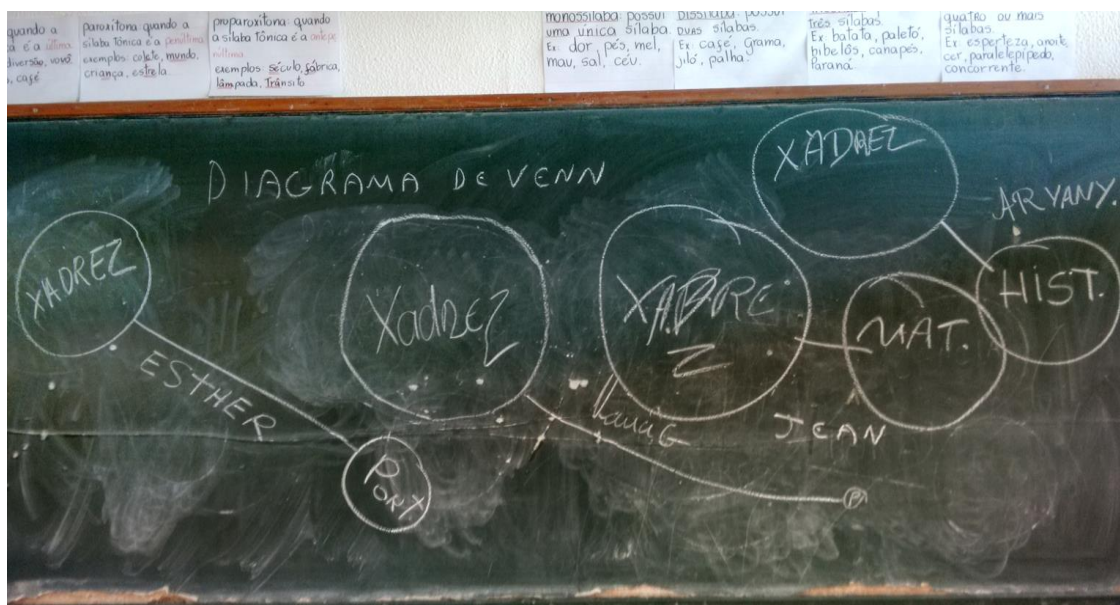 quando a
a é a última
diversão, vovô
, café
paroxítona quando a
sílaba tônica é a penúltima
exemplos: colete, mundo,
criança, estrela.
proparoxítona: quando
a sílaba tônica é a antepe
núltima
exemplos: século, fábrica,
lâmpada, Trânsito
monossílaba: possui
uma única sílaba.
Ex: dor, pés, mel,
mau, sal, céu.
Dissílaba: possui
DUAS sílabas.
Ex: café, Grama,
jiló, palha.
três sílabas.
Ex: batata, paletó,
bibelôs, canapés,
Paraná.
quatro ou mais
sílabas.
Ex: esperteza, anoite
cer, paralelepípedo,
concorrente.
DIAGRAMA DE VENN
XADREZ
ESTHER
PORT
Xadrez
XADRE
Z
MAT.
JEAN
XADREZ
ARYANY.
HIST.